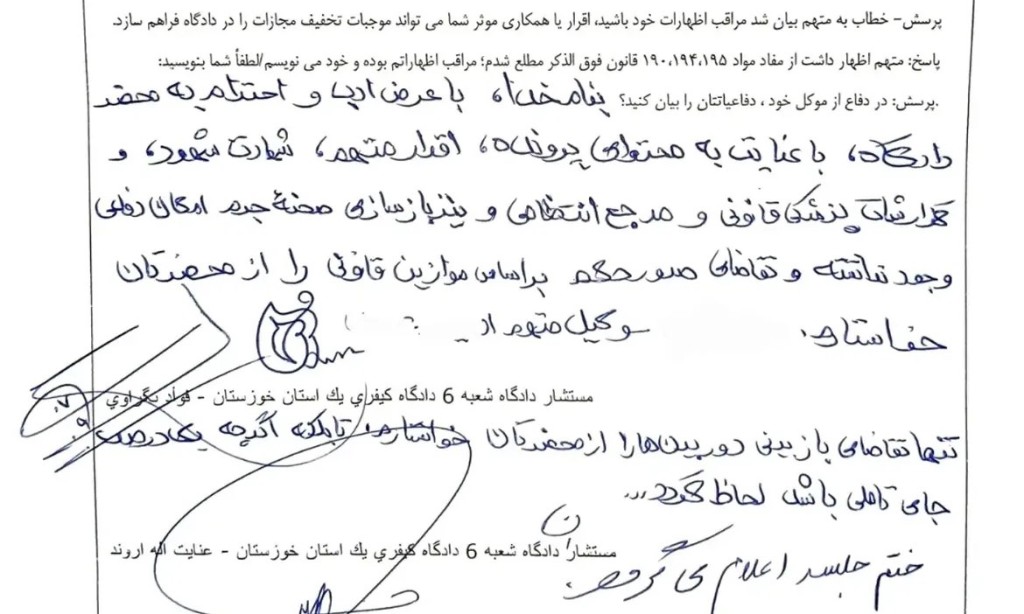 پرسش- خطاب به متهم بیان شد مراقب اظهارات خود باشید، اقرار یا همکاری موثر شما می تواند موجبات تخفیف مجازات را در دادگاه فراهم سازد.
پاسخ: متهم اظهار داشت از مفاد مواد ۱۹۰،۱۹۴،۱۹۵ قانون فوق الذکر مطلع شدم؛ مراقب اظهاراتم بوده و خود می نویسم/لطفاً شما بنویسید:
.پرسش: در دفاع از موکل خود ، دفاعیاتتان را بیان کنید؟ بنام خدا، با عرض ادب و احترام به محضر
دادگاه، با عنایت به محتوای پرونده، اقرار متهم، شهادت شهود، و
گزارشات پزشکی قانونی و مرجع انتظامی و نیز بازسازی صحنهٔ جرم امکان دفاعی
وجود نداشته و تقاضای صدور حکم براساس موازین قانونی را از محضرتان
خواستارم. وکیل متهم
مستشار دادگاه شعبه 6 دادگاه کیفري یك استان خوزستان - فواد بگراوي
تنها تقاضای بازبینی دوربین‌ها را از محضرتان خواستارم تا بلکه اگرچه یک درصد
جای تاملی باشد لحاظ گردد...
مستشار دادگاه شعبه 6 دادگاه کیفري یك استان خوزستان - عنایت اله اروند
ختم جلسه اعلام می گردد.